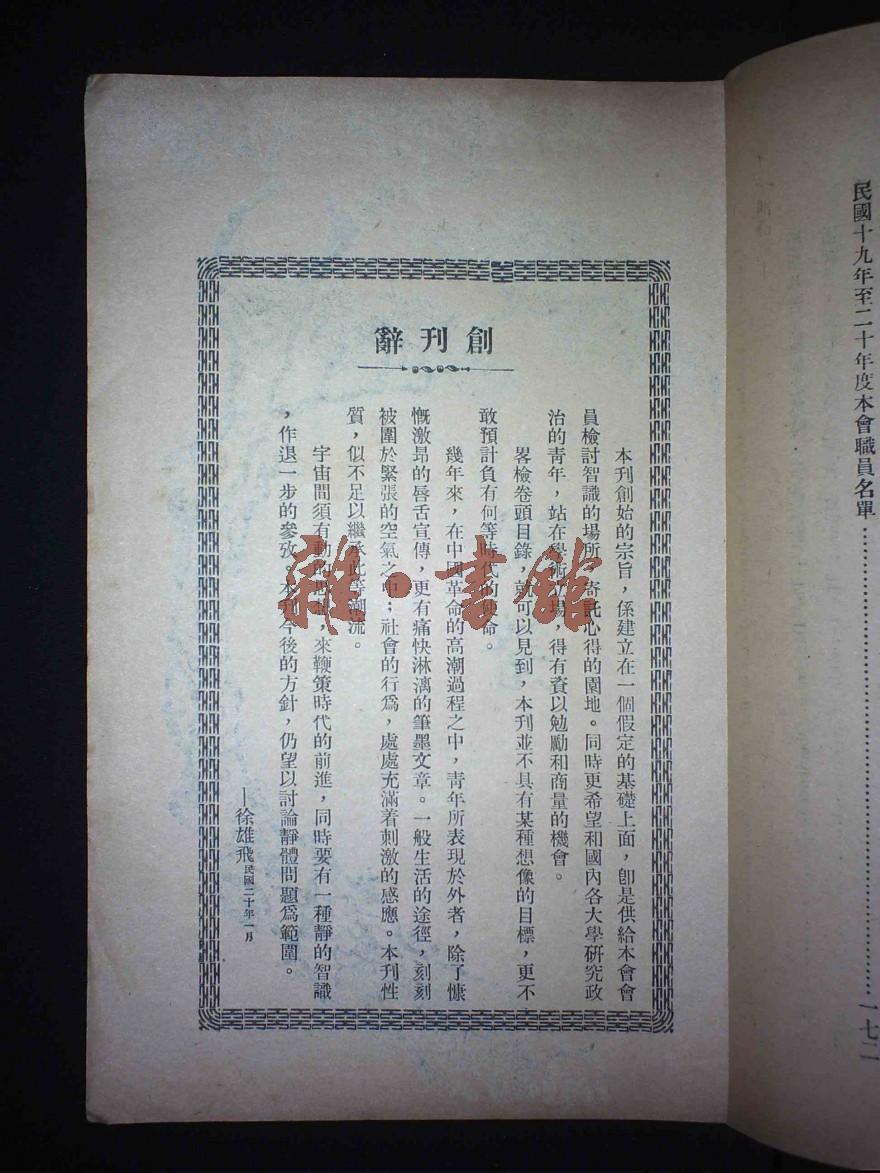 民國十九年至二十年度本會職員名單……一七二
創刊辭
本刊創始的宗旨，係建立在一個假定的基礎上面，卽是供給本會會
員檢討智識的場所，寄託心得的園地。同時更希望和國內各大學研究政
治的青年，站在學術立場，得有資以勉勵和商量的機會。
畧檢卷頭目錄，就可以見到，本刊並不具有某種想像的目標，更不
敢預計負有何等時代的使命。
幾年來，在中國革命的高潮過程之中，青年所表現於外者，除了慷
慨激昂的唇舌宣傳，更有痛快淋漓的筆墨文章。一般生活的途徑，刻刻
被圍於緊張的空氣之中；社會的行爲，處處充滿着刺激的感應。本刊性
質，似不足以繼承此等潮流。
宇宙間須有動，來鞭策時代的前進，同時要有一種靜的智識
，作退一步的參攷。本刊今後的方針，仍望以討論靜體問題爲範圍。
—徐雄飛民國二十年一月
雜·書館